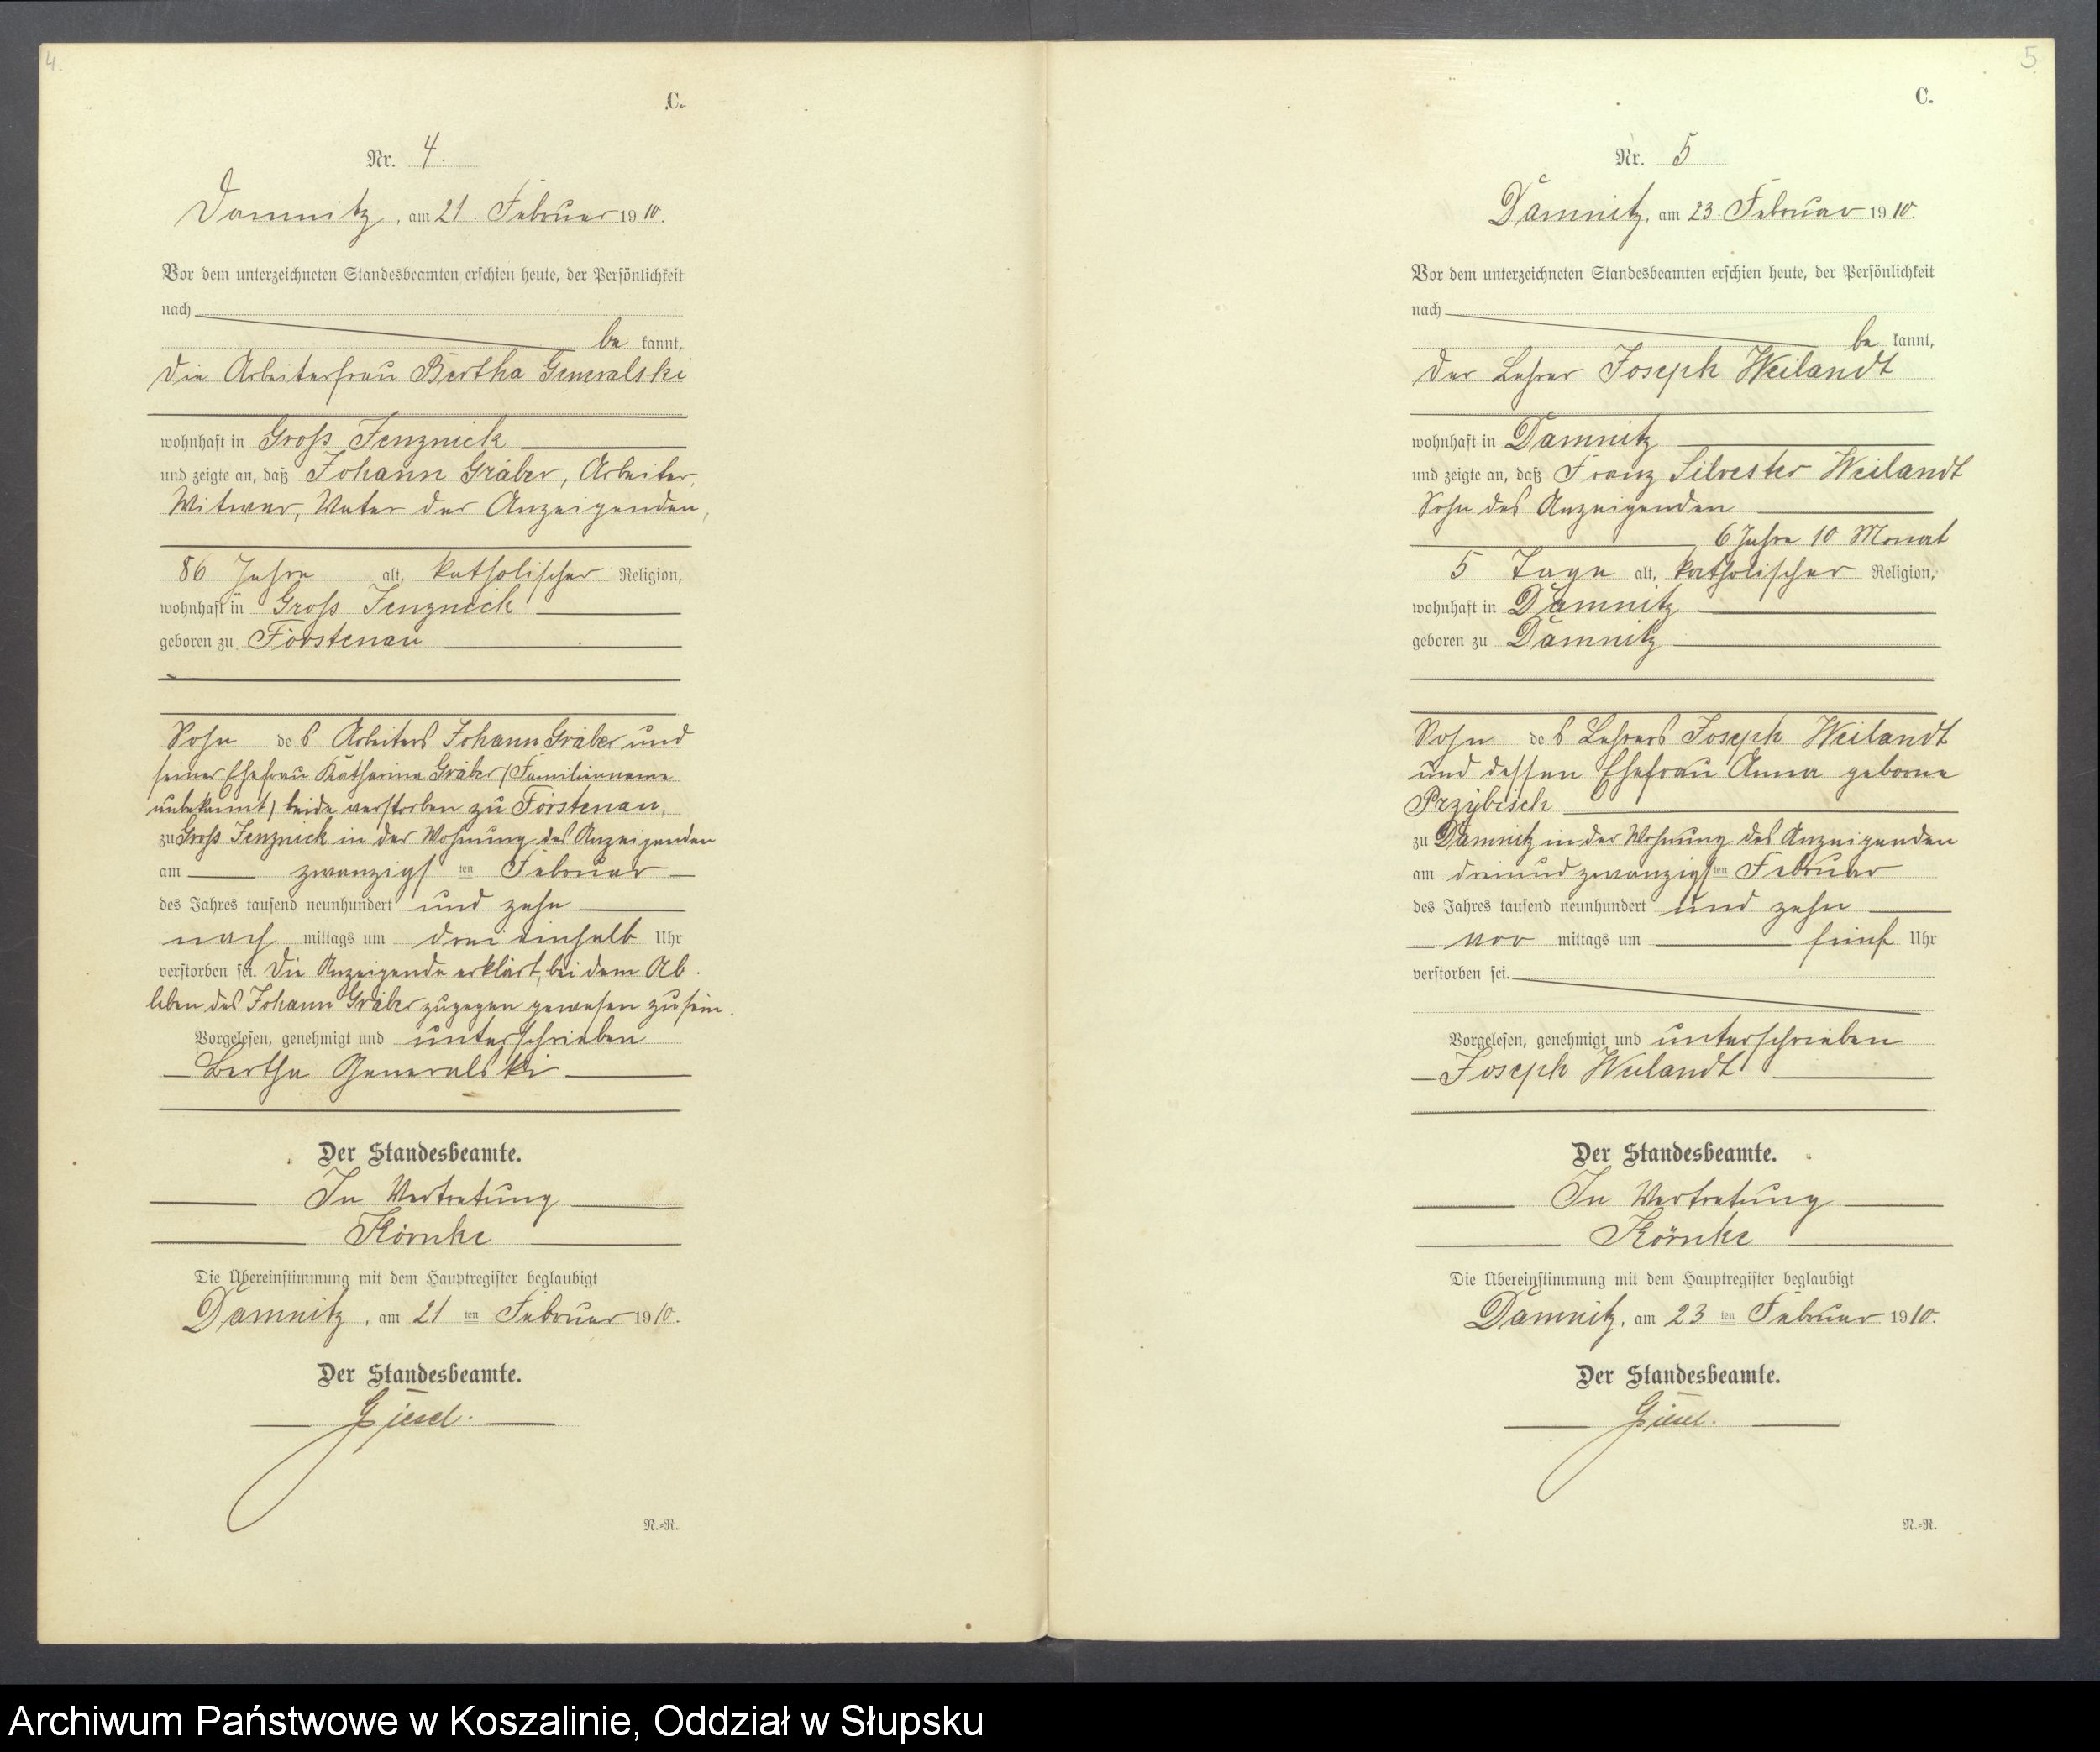 4.
C.
Nr. 4.
Damnitz, am 21. Februar 1910.
Vor dem unterzeichneten Standesbeamten erschien heute, der Persönlichkeit
nach
be kannt,
die Arbeiterfrau Bertha Generalski
wohnhaft in Gross Jenznick
und zeigte an, daß Johann Gräber, Arbeiter,
Witwer, Vater der Anzeigenden,
86 Jahre alt, katholischer Religion,
wohnhaft in Gross Jenznick
geboren zu Förstenau
Sohn des Arbeiters Johann Gräber und
seiner Ehefrau Katharina Gräber (Familienname
unbekannt) beide verstorben zu Förstenau,
zu Gross Jenznick in der Wohnung des Anzeigenden
am zwanzigsten Februar
des Jahres tausend neunhundert und zehn
nach mittags um drei einhalb Uhr
verstorben sei. Die Anzeigende erklärt, bei dem Ab
leben des Johann Gräber zugegen gewesen zu sein.
Vorgelesen, genehmigt und unterschrieben
Bertha Generalski
Der Standesbeamte.
In Vertretung
Körnke
Die Übereinstimmung mit dem Hauptregister beglaubigt
Damnitz, am 21ten Februar 1910.
Der Standesbeamte.
Giesel.
N.=R.
5.
C.
Nr. 5
Damnitz, am 23. Februar 1910.
Vor dem unterzeichneten Standesbeamten erschien heute, der Persönlichkeit
nach
be kannt,
der Lehrer Joseph Weilandt
wohnhaft in Damnitz
und zeigte an, daß Franz Silvester Weilandt
Sohn des Anzeigenden
6 Jahre 10 Monat
5 Tage alt, katholischer Religion,
wohnhaft in Damnitz
geboren zu Damnitz
Sohn des Lehrers Joseph Weilandt
und dessen Ehefrau Anna geborne
Przybisch
zu Damnitz in der Wohnung des Anzeigenden
am dreiundzwanzigsten Februar
des Jahres tausend neunhundert und zehn
vor mittags um fünf Uhr
verstorben sei.
Vorgelesen, genehmigt und unterschrieben
Joseph Weilandt
Der Standesbeamte.
In Vertretung
Körnke
Die Übereinstimmung mit dem Hauptregister beglaubigt
Damnitz, am 23ten Februar 1910.
Der Standesbeamte.
Giesel.
N.=R.
Archiwum Państwowe w Koszalinie, Oddział w Słupsku